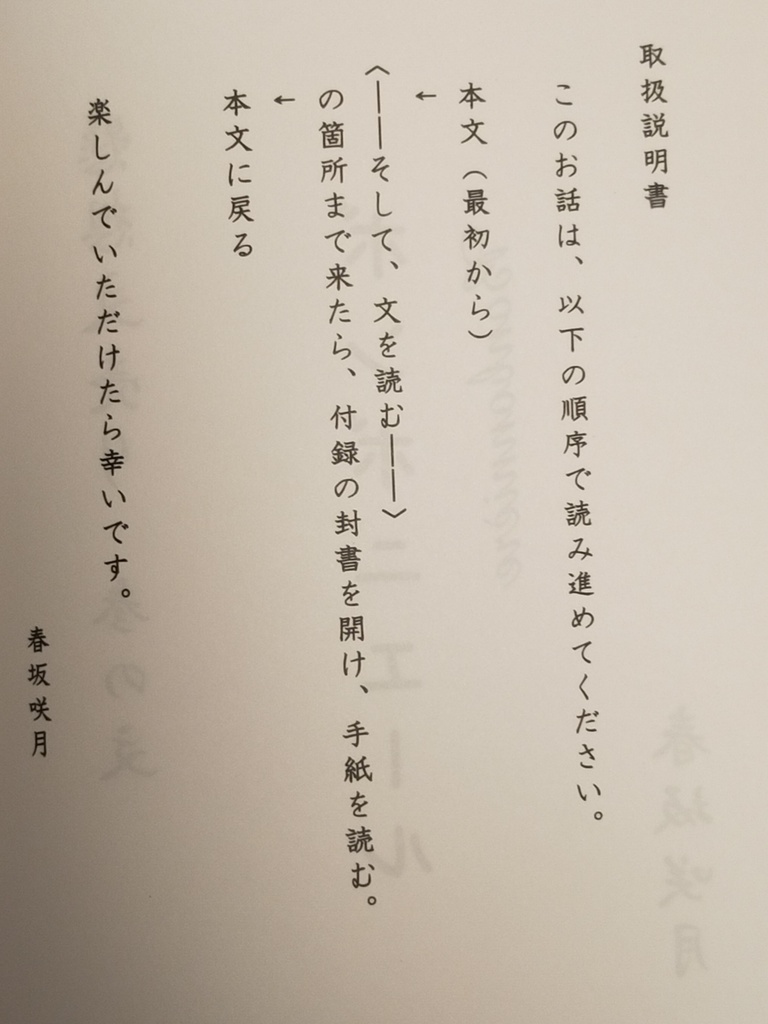 取扱説明書
このお話は、以下の順序で読み進めてください。
本文（最初から）
←
〈――そして、文を読む――〉
の箇所まで来たら、付録の封書を開け、手紙を読む。
←
本文に戻る
楽しんでいただけたら幸いです。
春坂咲月